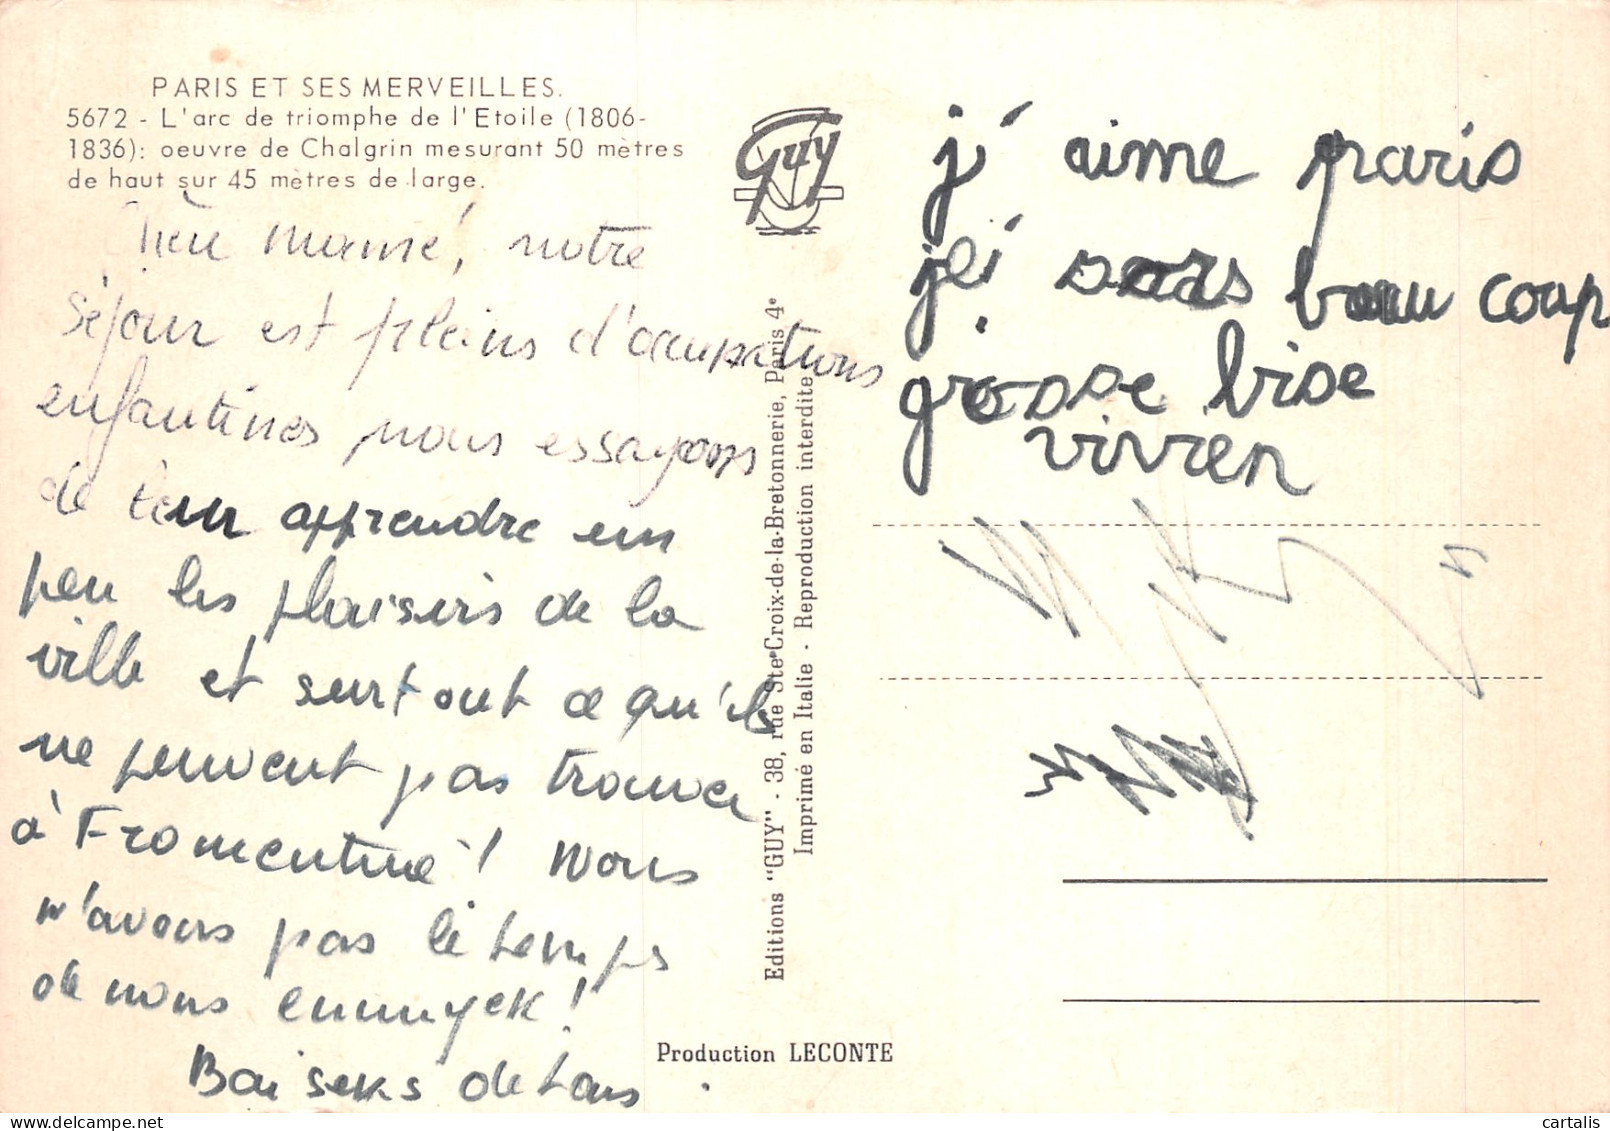 PARIS ET SES MERVEILLES.
5672 - L'arc de triomphe de l'Etoile (1806-
1836): oeuvre de Chalgrin mesurant 50 mètres
de haut sur 45 mètres de large.
notre
séjour est pleins d'occupations
enfantines nous essayons
de leur apprendre un
peu les plaisirs de la
ville et surtout ce qu'ils
ne peuvent pas trouver
à Fromentine ! Nous
n'avons pas le temps
de nous ennuyer !
Baisers de tous
Production LECONTE
Guy
Editions "GUY" - 38, rue Ste-Croix-de-la-Bretonnerie, Paris 4e
Imprimé en Italie - Reproduction interdite
j' aime paris
beau coup
grosse bise
vivien
cartalis